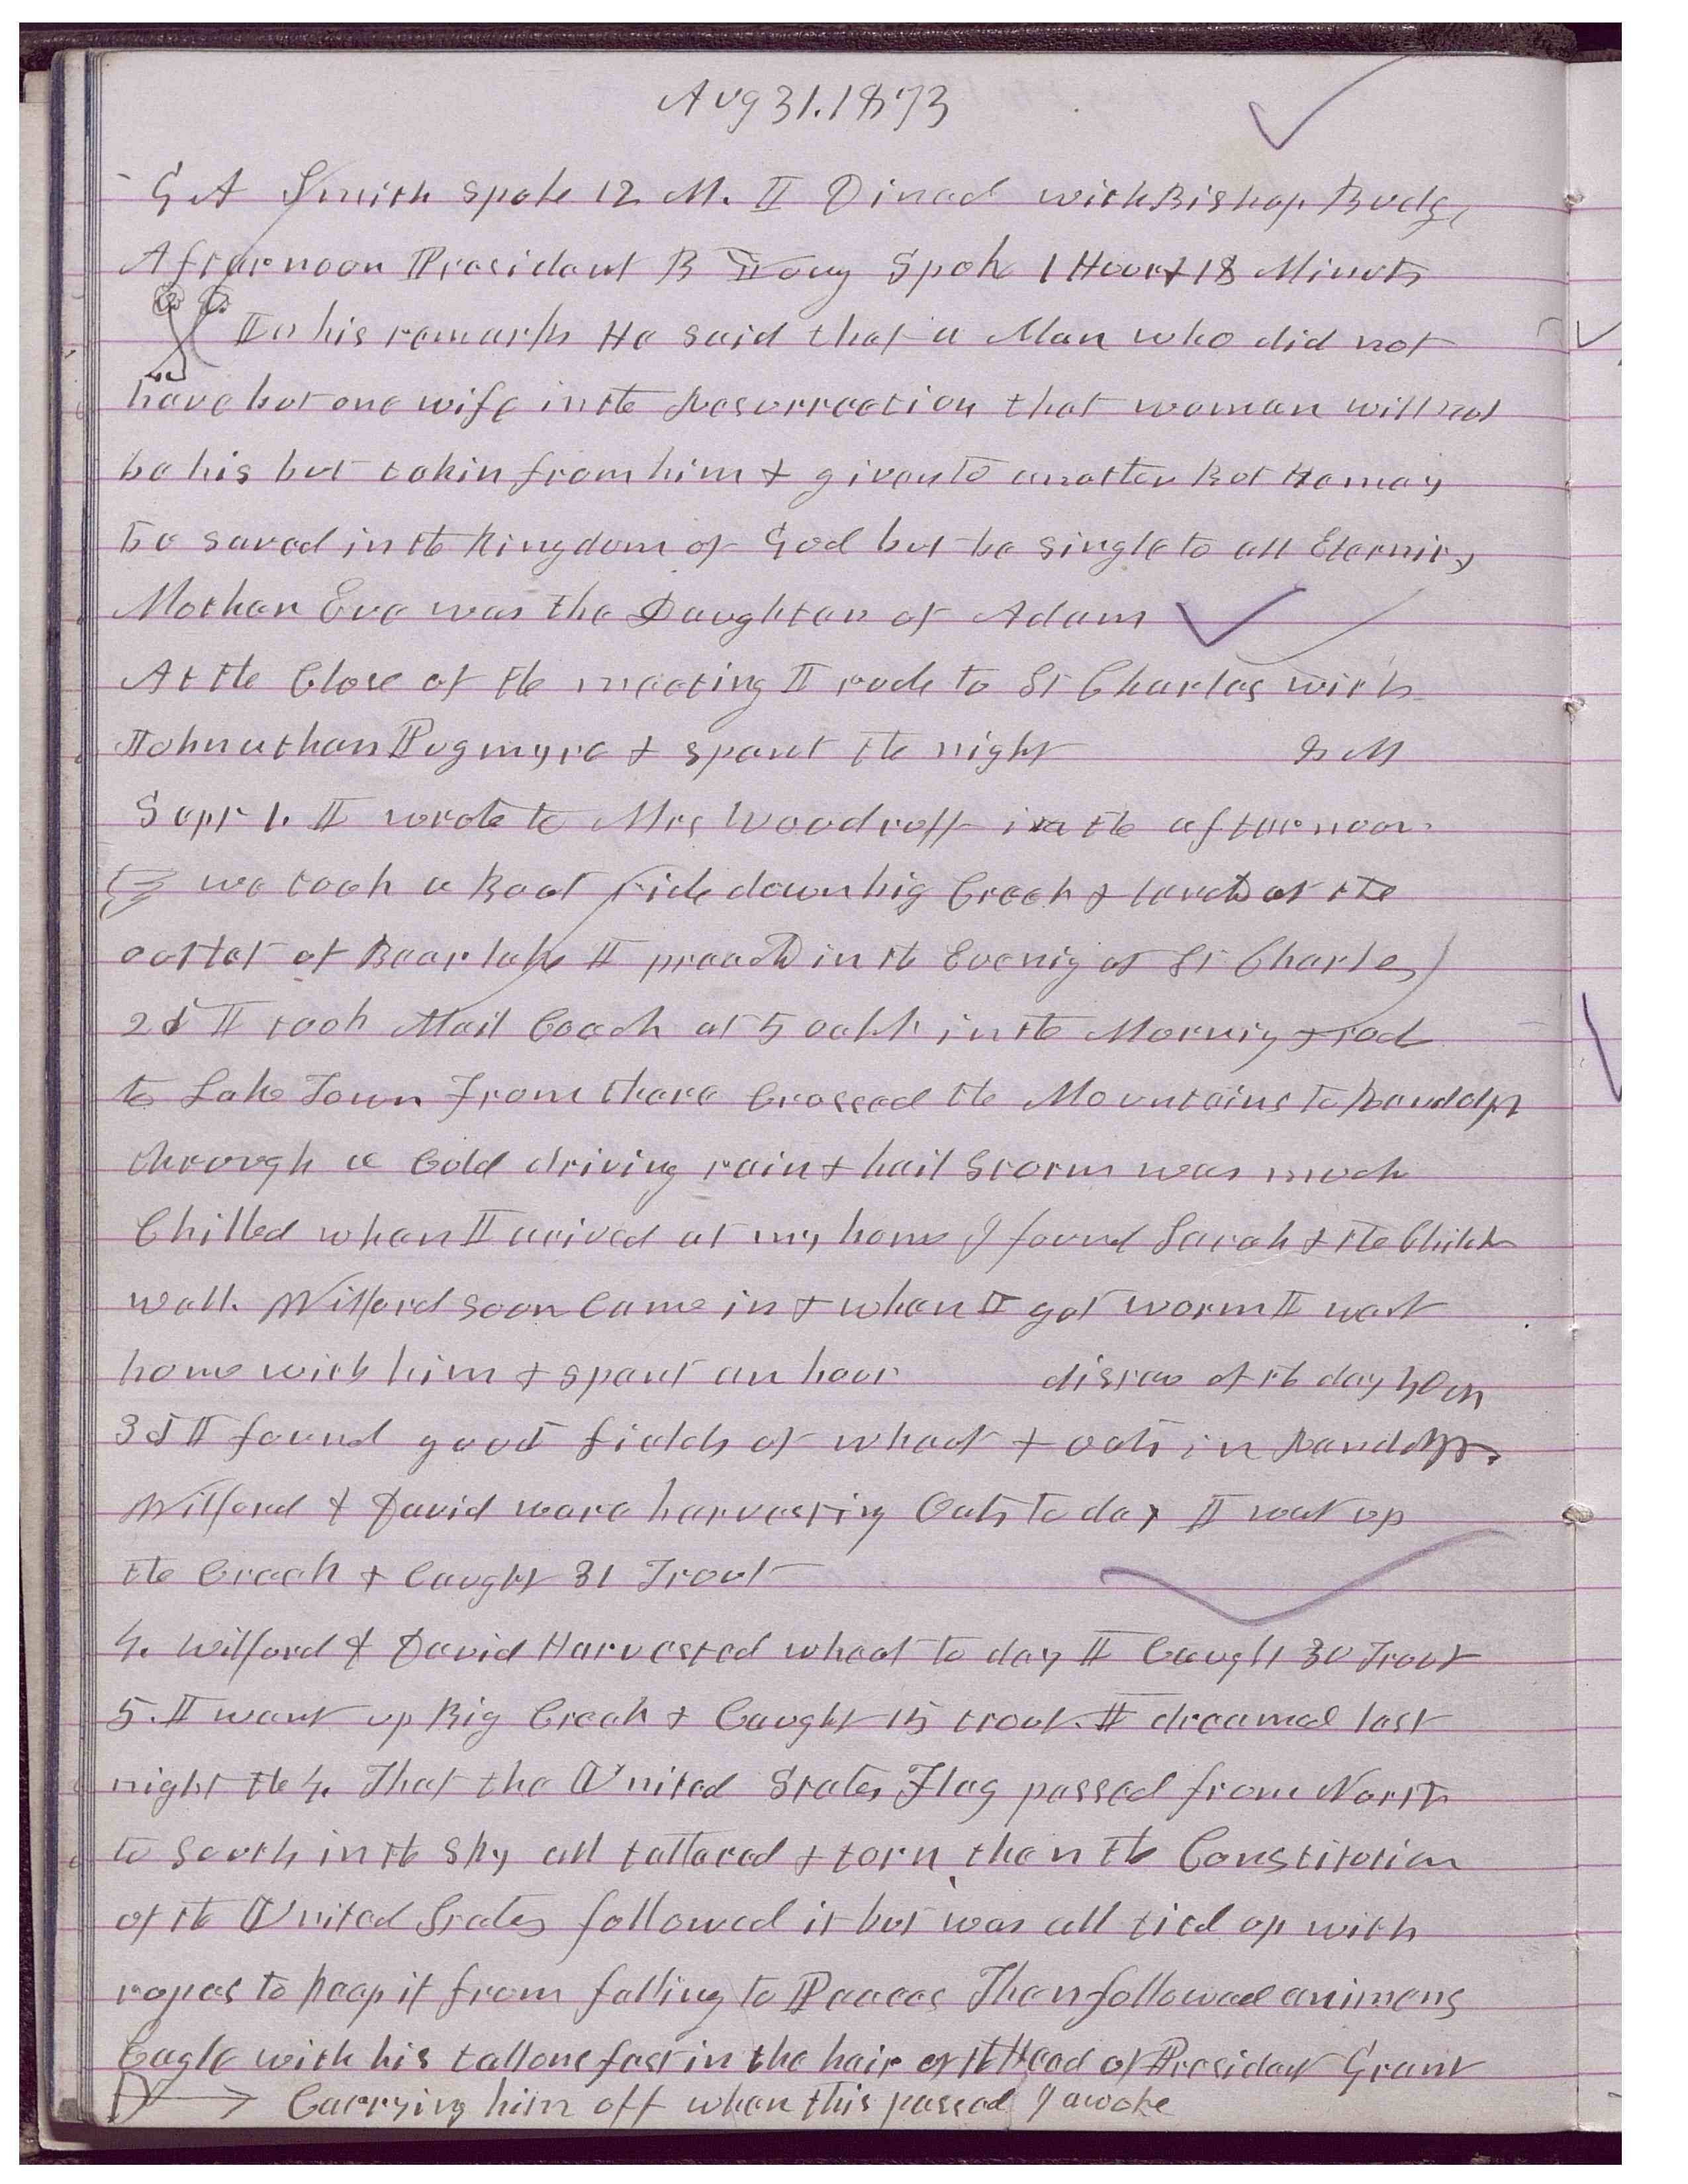 Aug 31. 1873
G A Smith Spoke 12 M. I Dined with Bishop Budge
Afternoon President B Young Spoke 1 Hour & 18 Minuts
In his remarks He said that a Man who did not
have but one wife in the Resurrection that woman will not
be his but takin from him & given to another But He may
be saved in the kingdom of God but be single to all Eternity
Mother Eve was the Daughter of Adam
At the Close of the meeting I rode to St Charles with
Johnathan Pugmyre & spent the night 8 M
Sept 1. I wrote to Mrs Woodruff in the afternoon
we took a Boat ride down big Creek & towards the
outlet of Bear lake I preached in the Evenig at St Charles
2d I took Mail Coach at 5 oclk in the Mornig & rode
to Lake Town From there Crossed the Mountains to Randolph
through a Cold driving rain & hail Storm was much
Chilled when I arived at my home I found Sarah & the Children
well. Wilford soon Came in & when I got worm I went
home with him & spent an hour distan of the day 40 m
3d I found good fields of wheat & oats in Randolph.
Wilford & David were harvesting Oats to day I went up
the Creek & Caught 31 Trout
4. Wilford & David Harvested wheat to day I Caught 30 Trout
5. I went up Big Creek & Caught 15 trout. I dreamed last
night the 4. That the United States Flag passed from North
to South in the Sky all tattered & torn then the Constitution
of the United States followed it but was all tied up with
ropes to keep it from falling to Peaces Then followed an imens
Eagle with his tallons fast in the hair of the Head of President Grant
Carrying him off when this passed I awoke